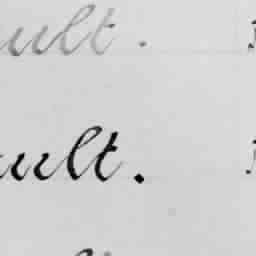 ult.
ult.